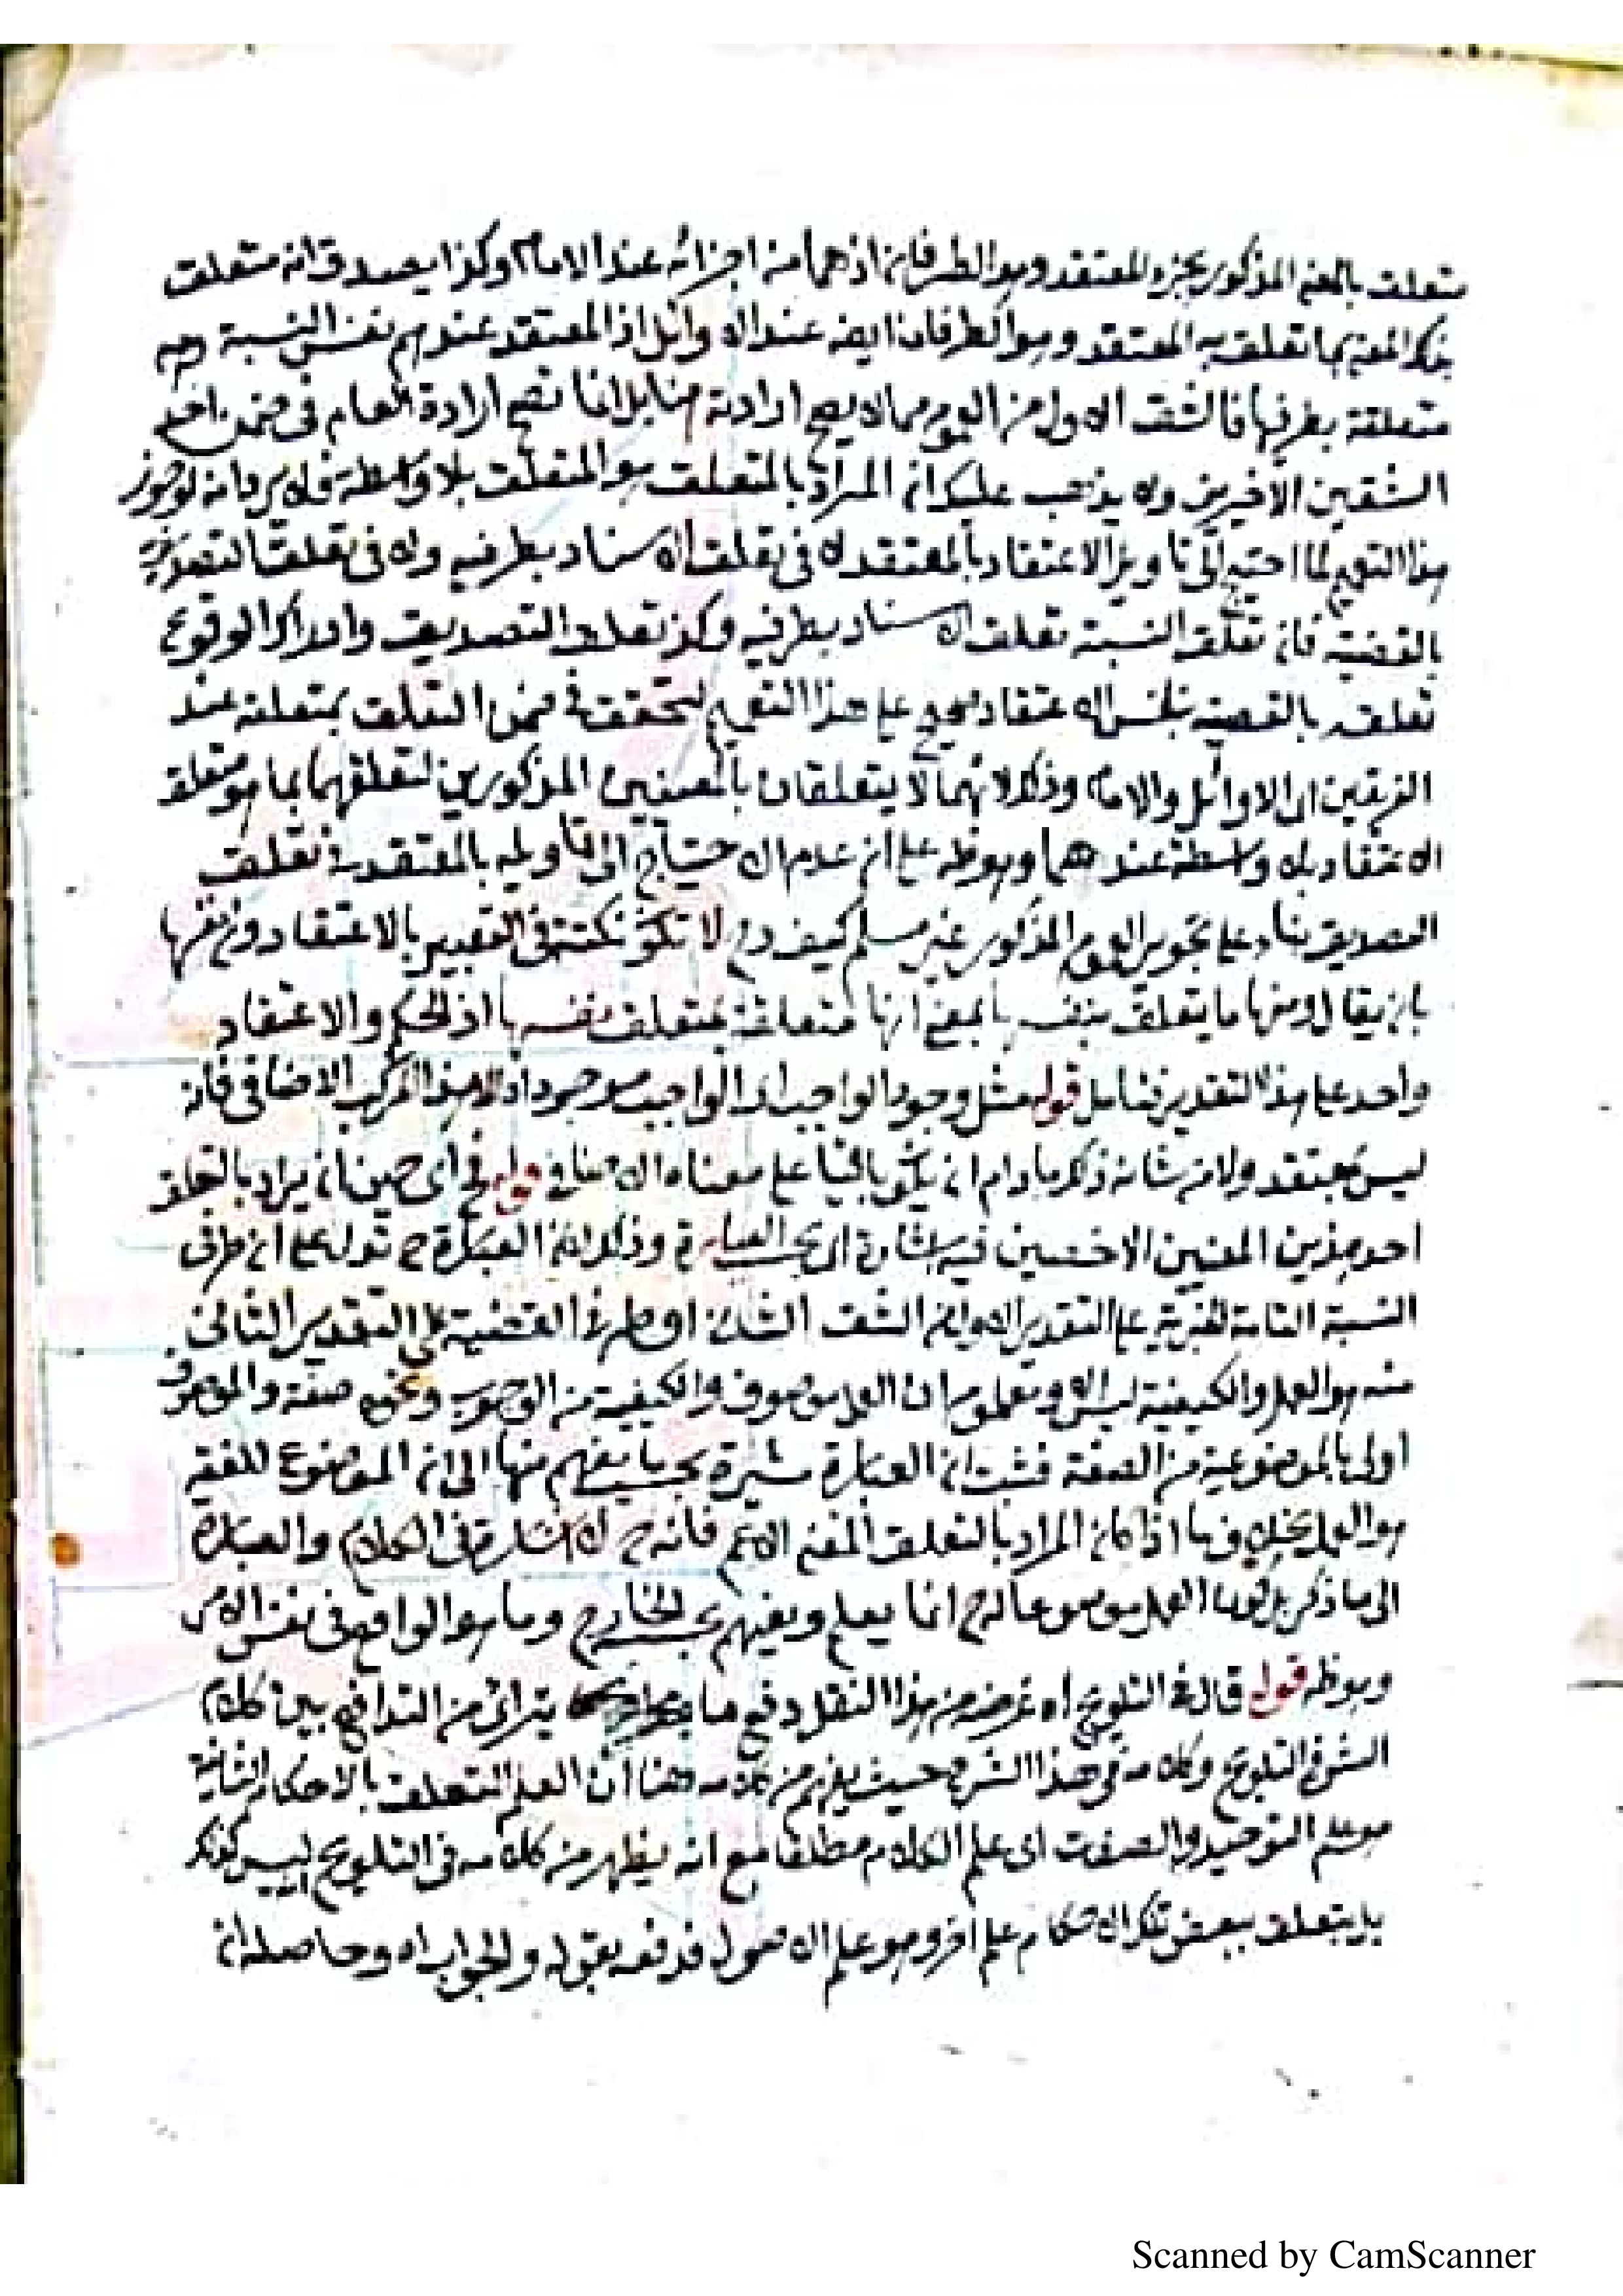 متعلق بالمعنى المذكور بجزء المعتقد وهو الطرفان اذ هما من اجزائه عند الامام وكذا يصدق انه متعلق
بذلك المعنى بما تعلق به المعتقد وهو الطرفان ايضا عند الاوائل اذ المعتقد عندهم نفس النسبة وهى
متعلقة بطرفيها فالشق الاول من العموم مما لا يصح ارادته هنا بل انما تصح ارادة العام فى ضمن احد
الشقين الأخيرين ولا يذهب عليك ان المراد بالمتعلق هو المتعلق بلا واسطة فلا يرد انه لو جوز
هذا التعميم لما احتيج الى تاويل الاعتقاد بالمعتقد لا فى تعلق الاسناد بطرفيه ولا فى تعلق التصديق
بالقضية فان تعلق النسبة تعلق الاسناد بطرفيه وكذا تعلق التصديق وادراك الوقوع
تعلقه بالقضية بنفس الاعتقاد يصح على هذا التعميم لتحققه فى ضمن التعلق بمتعلقه عند
الفريقين اى الاوائل والامام وذلك لانهما لا يتعلقان بالمعنيين المذكورين لتعلقهما بما هو متعلق
الاعتقاد بلا واسطة عندهما وهو ظ على ان عدم الاحتياج الى تاويله بالمعتقد فى تعلق
التصديق بناء على تجويز العموم المذكور غير مسلم كيف وح لا تكون نكتة فى التعبير بالاعتقاد دون نفيها
بان يقال ومنها ما يتعلق بنفسها بمعنى انها متعلقة بمتعلق نفسها اذ الحكم والاعتقاد
واحد على هذا التقدير فتامل قوله مثل وجود الواجب اى الواجب موجود اذ لا هذا المركب الاضافى فانه
ليس بمعتقد ولا من شانه ذلك ما دام ان يكون باقيا على معناه الاضافى قوله فح اى حين ان يراد بالتعلق
احد هذين المعنيين الاخصين فيه اشارة اى بحسب العبارة وذلك لان العبارة ح تدل على ان طرفى
النسبة التامة الخبرية على التقدير الاول من الشق الثانى او طرفى القضية على التقدير الثانى
منه هو العمل والكيفية ليس الا ومعلوم ان العمل موصوف والكيفية من الوجوب ونحوه صفة والموصوف
اولى بالموضوعية من الصفة فثبت ان العبارة مشيرة بحسب ما يفهم منها الى ان الموضوع للفقه
هو العمل بخلاف ما اذا كان المراد بالتعلق المعنى الاعم فانه ح لا اشارة فى الكلام والعبارة
الى ما ذكر بل كون العمل موضوعا له ح انما يعلم ويفهم بحسب الخارج وما هو الواقع فى نفس الامر
وهو ظ قوله قال فى التلويح اه غرضه من هذا النقل دفع ما يترائى من التدافع بين كلام
الش فى التلويح وكلامه فى هذا الشرح حيث يفهم من كلامه هنا ان العلم المتعلق بالاحكام الثانية
هو علم التوحيد والصفات اى علم الكلام مطلقا مع انه يظهر من كلامه فى التلويح ليس كذلك
بل يتعلق ببعض تلك الاحكام علم اخر وهو علم الاصول فدفعه بقوله والجواب اه وحاصله ان
Scanned by CamScanner